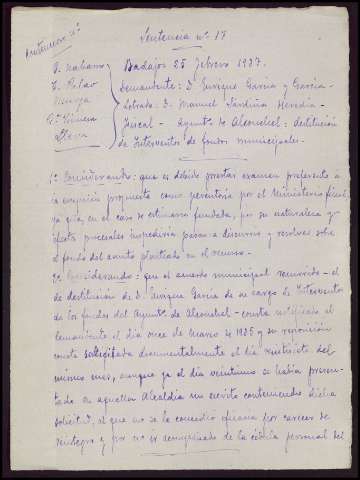 Sentencia nº 17
Badajoz 25 febrero 1937.
Demandante: D. Enrique Garcia y Garcia-
Letrado: D. Manuel Jardiña Heredia-
Fiscal - Ayuntº de Alconchel: destitución
de Interventor de fondos municipales.-
1º Considerando: que es debido prestar examen preferente a
la excepción propuesta como perentoria por el Ministerio fiscal,
ya que, en el caso de estimarse fundada, por su naturaleza y
efectos procesales impediria pasar a discurrir y resolver sobre
el fondo del asunto planteado en el recurso.
2º Considerando: que el acuerdo municipal recurrido - el
de destitución de D. Enrique Garcia de su cargo de Interventor
de los fondos del Ayuntº de Alconchel - consta notificado al
demandante el dia once de Marzo de 1935 y su reposición
consta solicitada documentalmente el dia veintisiete del
mismo mes, aunque ya el dia veintiuno se habia presen-
tado en aquella Alcaldia un escrito conteniendo dicha
solicitud, al que no se le concedió eficacia por carecer de
reintegro y por no ir acompañado de la cédula personal del